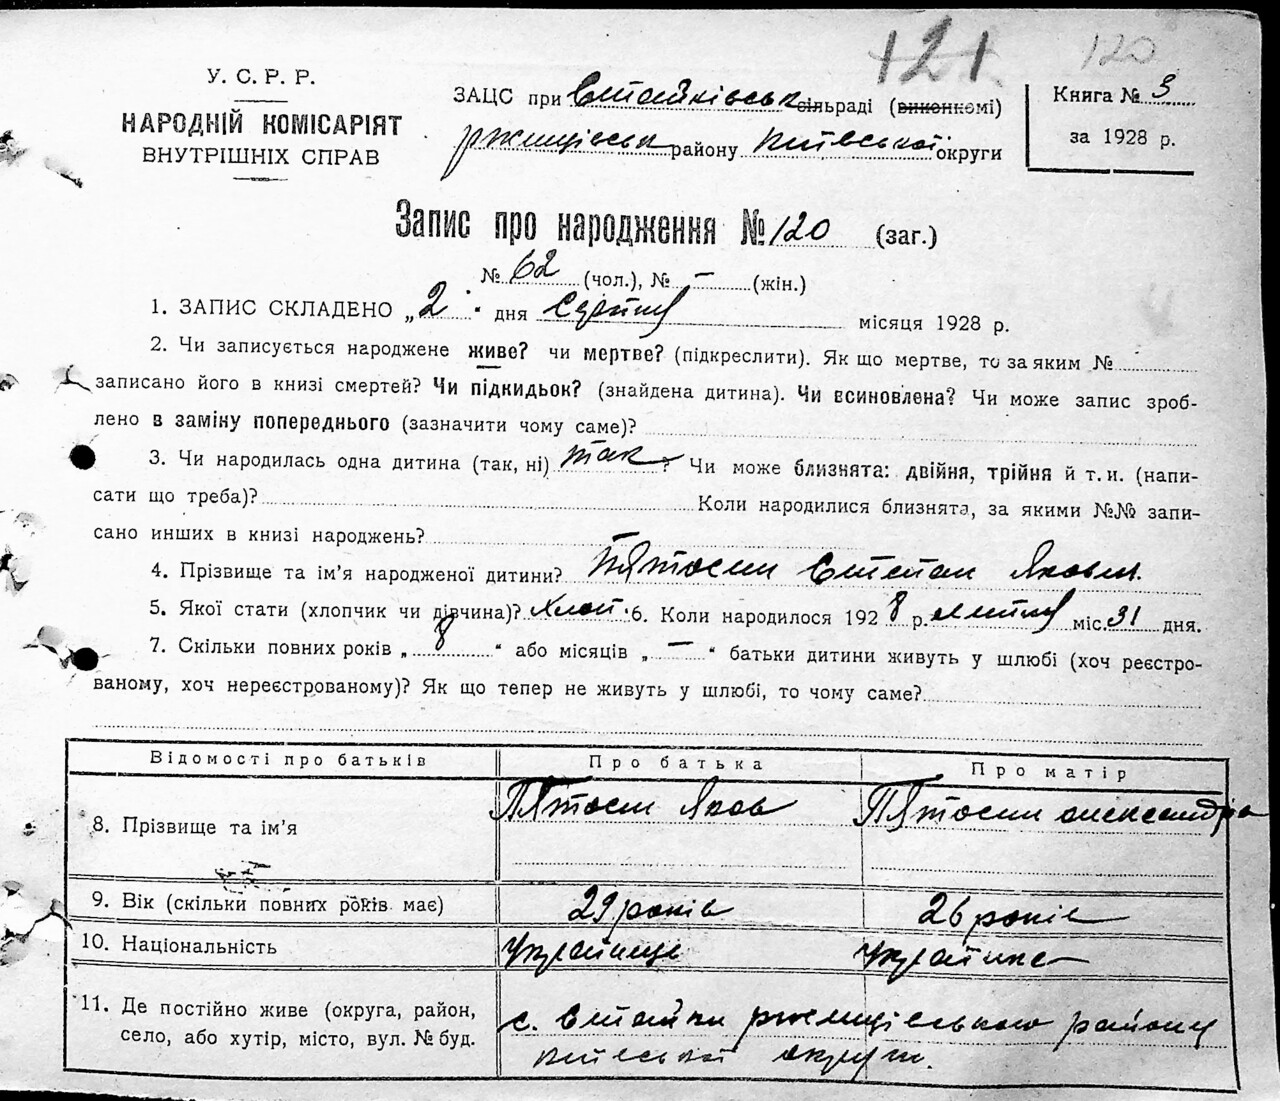 121 120
У. С. Р. Р.
НАРОДНІЙ КОМІСАРІЯТ
ВНУТРІШНІХ СПРАВ
ЗАЦС при Стайківськ сільраді (виконкомі)
ржищівськ району київської округи
Книга № 3
за 1928 р.
Запис про народження № 120 (заг.)
№ 62 (чол.), № – (жін.)
1. ЗАПИС СКЛАДЕНО „2" дня Серпня місяця 1928 р.
2. Чи записується народжене живе? чи мертве? (підкреслити). Як що мертве, то за яким №
записано його в книзі смертей? Чи підкидьок? (знайдена дитина). Чи всиновлена? Чи може запис зроб-
лено в заміну попереднього (зазначити чому саме)?
3. Чи народилась одна дитина (так, ні) так? Чи може близнята: двійня, трійня й т. и. (напи-
сати що треба)? Коли народилися близнята, за якими №№ запи-
сано инших в книзі народжень?
4. Прізвище та ім'я народженої дитини? Пятосин Степан Яковл.
5. Якої стати (хлопчик чи дівчина)? Хлоп. 6. Коли народилося 1928 р. липня міс. 31 дня.
7. Скільки повних років „8" або місяців „–" батьки дитини живуть у шлюбі (хоч реєстро-
ваному, хоч нереєстрованому)? Як що тепер не живуть у шлюбі, то чому саме?
Відомості про батьків Про батька Про матір
8. Прізвище та ім'я Пятосин Яков Пятосин олександра
9. Вік (скільки повних років має) 29 років 26 років
10. Національність Українець Українка
11. Де постійно живе (округа, район, с. Стайки ржищівського району
село, або хутір, місто, вул. № буд. київської округи.